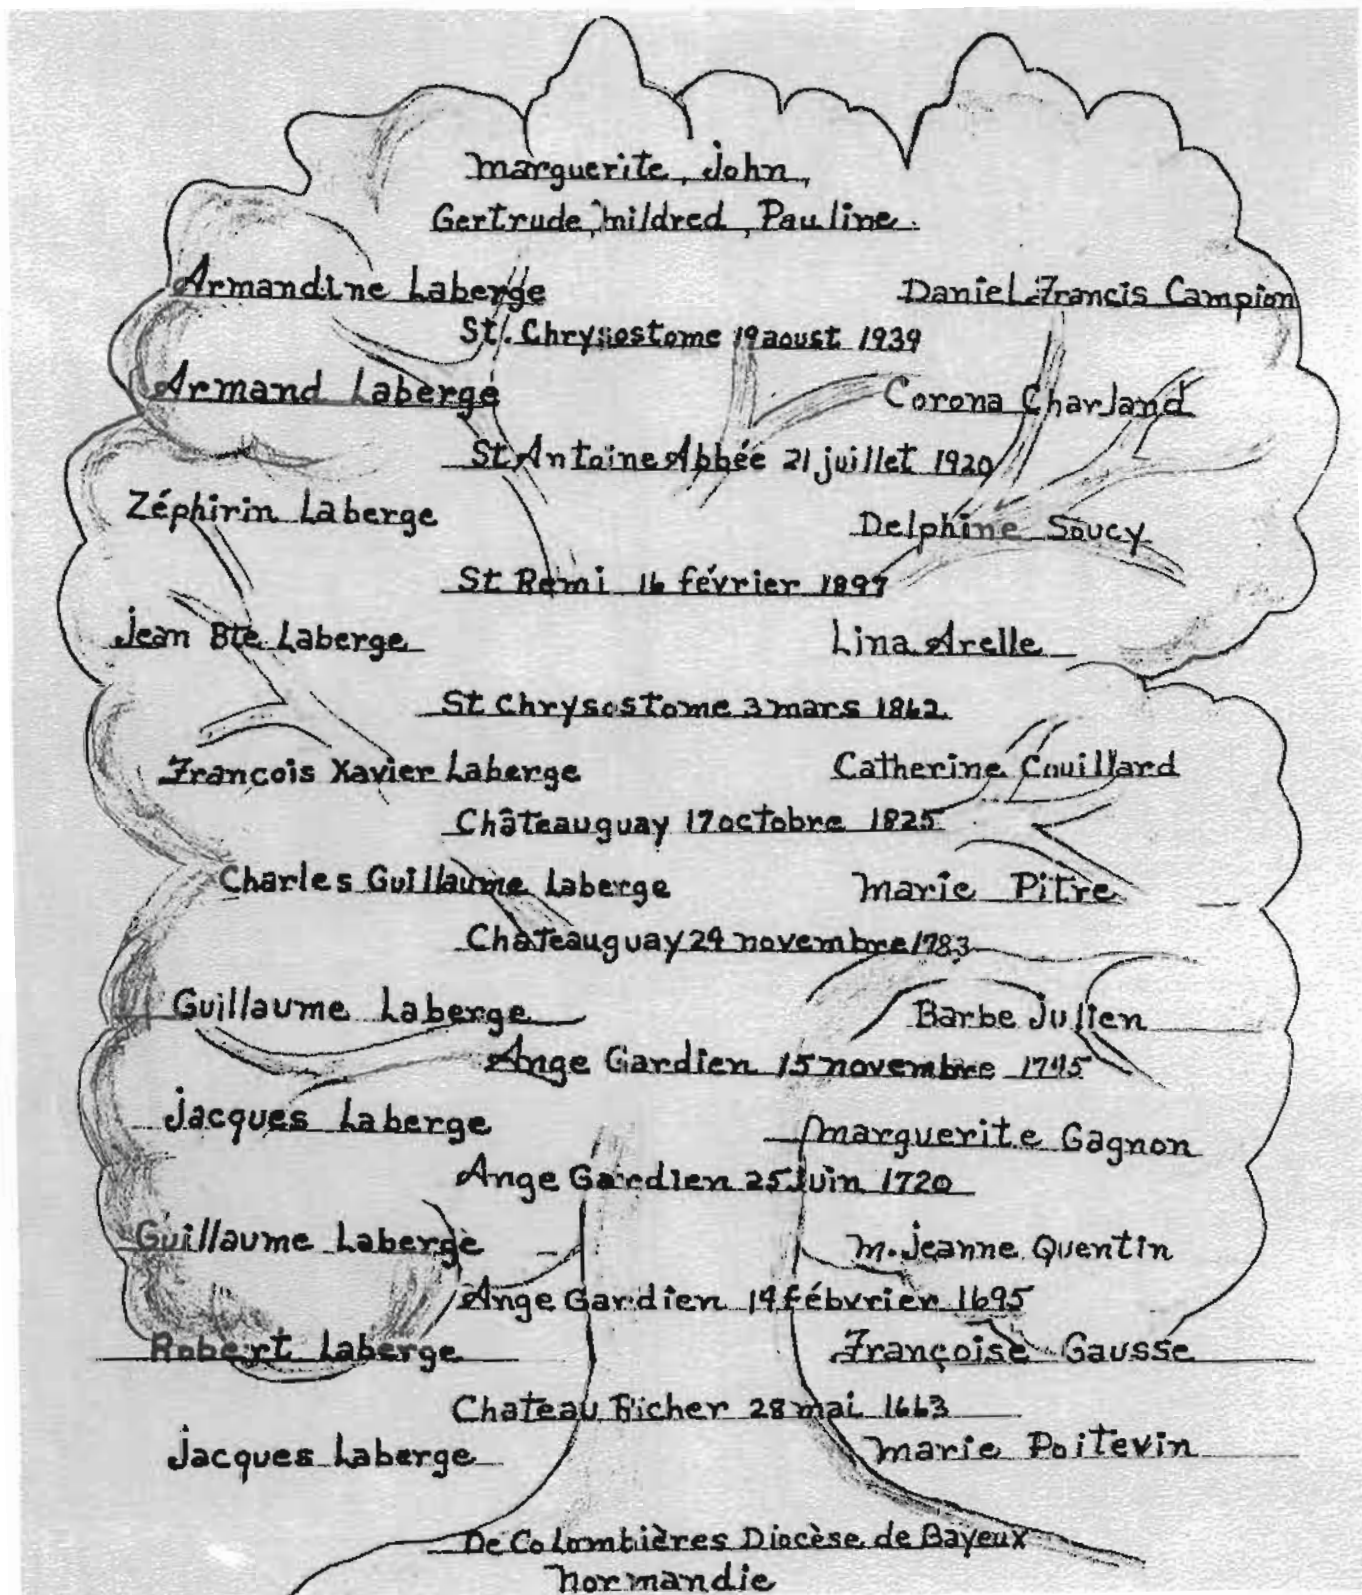 Marguerite, John,
Gertrude, Mildred, Pauline.
Armandine Laberge Daniel Francis Campion
St. Chrysostome 19 aoust 1939
Armand Laberge Corona Charland
St Antoine Abbée 21 juillet 1920
Zéphirin Laberge Delphine Soucy
St Remi 16 février 1897
Jean Bte Laberge Lina Arelle
St Chrysostome 3 mars 1862
François Xavier Laberge Catherine Couillard
Châteauguay 17 octobre 1825
Charles Guillaume Laberge Marie Pitre
Châteauguay 24 novembre 1783
Guillaume Laberge Barbe Julien
Ange Gardien 15 novembre 1745
Jacques Laberge Marguerite Gagnon
Ange Gardien 25 Juin 1720
Guillaume Laberge M. Jeanne Quentin
Ange Gardien 14 fébvrier 1695
Robert Laberge Françoise Gausse
Chateau Richer 28 mai 1663
Jacques Laberge Marie Poitevin
De Colombières Diocèse de Bayeux
Normandie